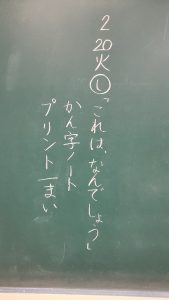 2
20
火
し「これは、なんでしょう」
かん字ノート
プリント一まい